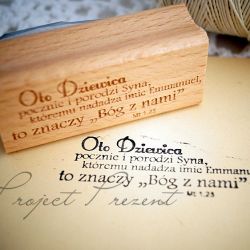 Oto Dziewica
pocznie i porodzi Syna,
któremu nadadzą imię Emmanuel,
to znaczy „Bóg z nami”
Mt 1,23
Oto Dziewica
pocznie i porodzi Syna,
któremu nadadzą imię Emmanuel
to znaczy „Bóg z nami”
Mt 1,23
Project Prezent